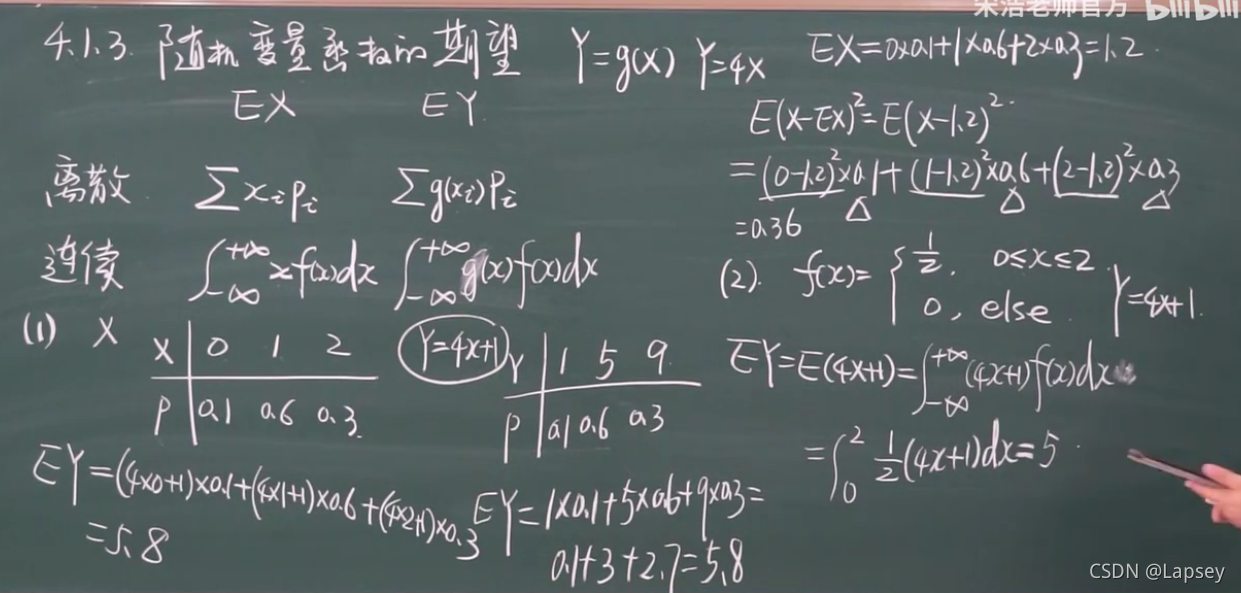 宋浩老师官方 bilibili
4.1.3. 随机变量函数的期望 Y=g(x) Y=4x
EX EY
离散 ∑xᵢpᵢ ∑g(xᵢ)Pᵢ
连续 ∫_{-∞}^{+∞} x f(x)dx ∫_{-∞}^{+∞} g(x)f(x)dx
(1) X
X | 0 1 2
P | 0.1 0.6 0.3
Y=4x+1
Y | 1 5 9
P | 0.1 0.6 0.3
EY=(4×0+1)×0.1+(4×1+1)×0.6+(4×2+1)×0.3
=5.8
EY=1×0.1+5×0.6+9×0.3=
0.1+3+2.7=5.8
EX=0×0.1+1×0.6+2×0.3=1.2
E(X-EX)²=E(X-1.2)²
=(0-1.2)²×0.1+(1-1.2)²×0.6+(2-1.2)²×0.3
=0.36
(2). f(x)= { 1/2, 0≤x≤2
0, else
Y=4x+1.
EY=E(4X+1)=∫_{-∞}^{+∞}(4x+1)f(x)dx
=∫_0^2 1/2(4x+1)dx=5
CSDN @Lapsey